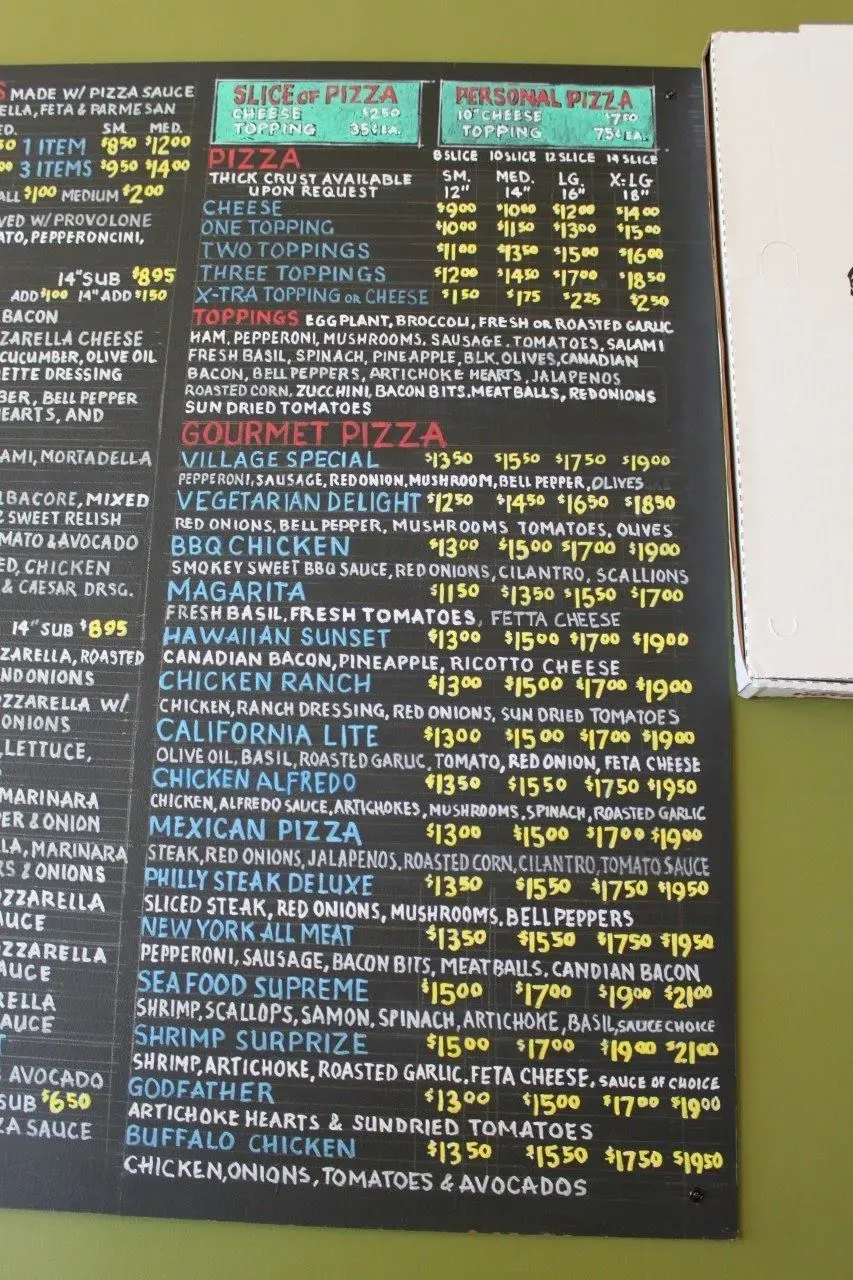 S MADE W/ PIZZA SAUCE
ELLA, FETA & PARMESAN
ED. SM. MED.
50 1 ITEM $850 $1200
00 3 ITEMS $950 $1400
ALL $100 MEDIUM $200
VED W/ PROVOLONE
ATO, PEPPERONCINI,
14" SUB $895
ADD $100 14" ADD $150
BACON
ZARELLA CHEESE
CUCUMBER, OLIVE OIL
ETTE DRESSING
BER, BELL PEPPER
EARTS, AND
AMI, MORTADELLA
LBACORE, MIXED
SWEET RELISH
MATO & AVOCADO
ED, CHICKEN
& CAESAR DRSG.
14" SUB $895
ZARELLA, ROASTED
ND ONIONS
OZZARELLA W/
ONIONS
LETTUCE,
MARINARA
ER & ONION
LA, MARINARA
RS & ONIONS
OZZARELLA
AUCE
OZZARELLA
AUCE
RELLA
AUCE
AVOCADO
SUB $650
ZA SAUCE
SLICE OF PIZZA
CHEESE $250
TOPPING 35¢ EA.
PERSONAL PIZZA
10" CHEESE $750
TOPPING 75¢ EA.
PIZZA 8 SLICE 10 SLICE 12 SLICE 14 SLICE
THICK CRUST AVAILABLE SM. MED. LG. X-LG
UPON REQUEST 12" 14" 16" 18"
CHEESE $900 $1000 $1200 $1400
ONE TOPPING $1000 $1150 $1300 $1500
TWO TOPPINGS $1100 $1350 $1500 $1600
THREE TOPPINGS $1200 $1450 $1700 $1850
X-TRA TOPPING OR CHEESE $150 $175 $225 $250
TOPPINGS EGGPLANT, BROCCOLI, FRESH OR ROASTED GARLIC
HAM, PEPPERONI, MUSHROOMS, SAUSAGE, TOMATOES, SALAMI
FRESH BASIL, SPINACH, PINEAPPLE, BLK. OLIVES, CANADIAN
BACON, BELL PEPPERS, ARTICHOKE HEARTS, JALAPENOS
ROASTED CORN, ZUCCHINI, BACON BITS, MEATBALLS, RED ONIONS
SUN DRIED TOMATOES
GOURMET PIZZA
VILLAGE SPECIAL $1350 $1550 $1750 $1900
PEPPERONI, SAUSAGE, RED ONION, MUSHROOM, BELL PEPPER, OLIVES
VEGETARIAN DELIGHT $1250 $1450 $1650 $1850
RED ONIONS, BELL PEPPER, MUSHROOMS TOMATOES, OLIVES
BBQ CHICKEN $1300 $1500 $1700 $1900
SMOKEY SWEET BBQ SAUCE, RED ONIONS, CILANTRO, SCALLIONS
MAGARITA $1150 $1350 $1550 $1700
FRESH BASIL, FRESH TOMATOES, FETTA CHEESE
HAWAIIAN SUNSET $1300 $1500 $1700 $1900
CANADIAN BACON, PINEAPPLE, RICOTTO CHEESE
CHICKEN RANCH $1300 $1500 $1700 $1900
CHICKEN, RANCH DRESSING, RED ONIONS, SUN DRIED TOMATOES
CALIFORNIA LITE $1300 $1500 $1700 $1900
OLIVE OIL, BASIL, ROASTED GARLIC, TOMATO, RED ONION, FETA CHEESE
CHICKEN ALFREDO $1350 $1550 $1750 $1950
CHICKEN, ALFREDO SAUCE, ARTICHOKES, MUSHROOMS, SPINACH, ROASTED GARLIC
MEXICAN PIZZA $1300 $1500 $1700 $1900
STEAK, RED ONIONS, JALAPENOS, ROASTED CORN, CILANTRO, TOMATO SAUCE
PHILLY STEAK DELUXE $1350 $1550 $1750 $1950
SLICED STEAK, RED ONIONS, MUSHROOMS, BELL PEPPERS
NEW YORK ALL MEAT $1350 $1550 $1750 $1950
PEPPERONI, SAUSAGE, BACON BITS, MEATBALLS, CANDIAN BACON
SEAFOOD SUPREME $1500 $1700 $1900 $2100
SHRIMP, SCALLOPS, SAMON, SPINACH, ARTICHOKE, BASIL, SAUCE CHOICE
SHRIMP SURPRIZE $1500 $1700 $1900 $2100
SHRIMP, ARTICHOKE, ROASTED GARLIC, FETA CHEESE, SAUCE OF CHOICE
GODFATHER $1300 $1500 $1700 $1900
ARTICHOKE HEARTS & SUNDRIED TOMATOES
BUFFALO CHICKEN $1350 $1550 $1750 $1950
CHICKEN, ONIONS, TOMATOES & AVOCADOS